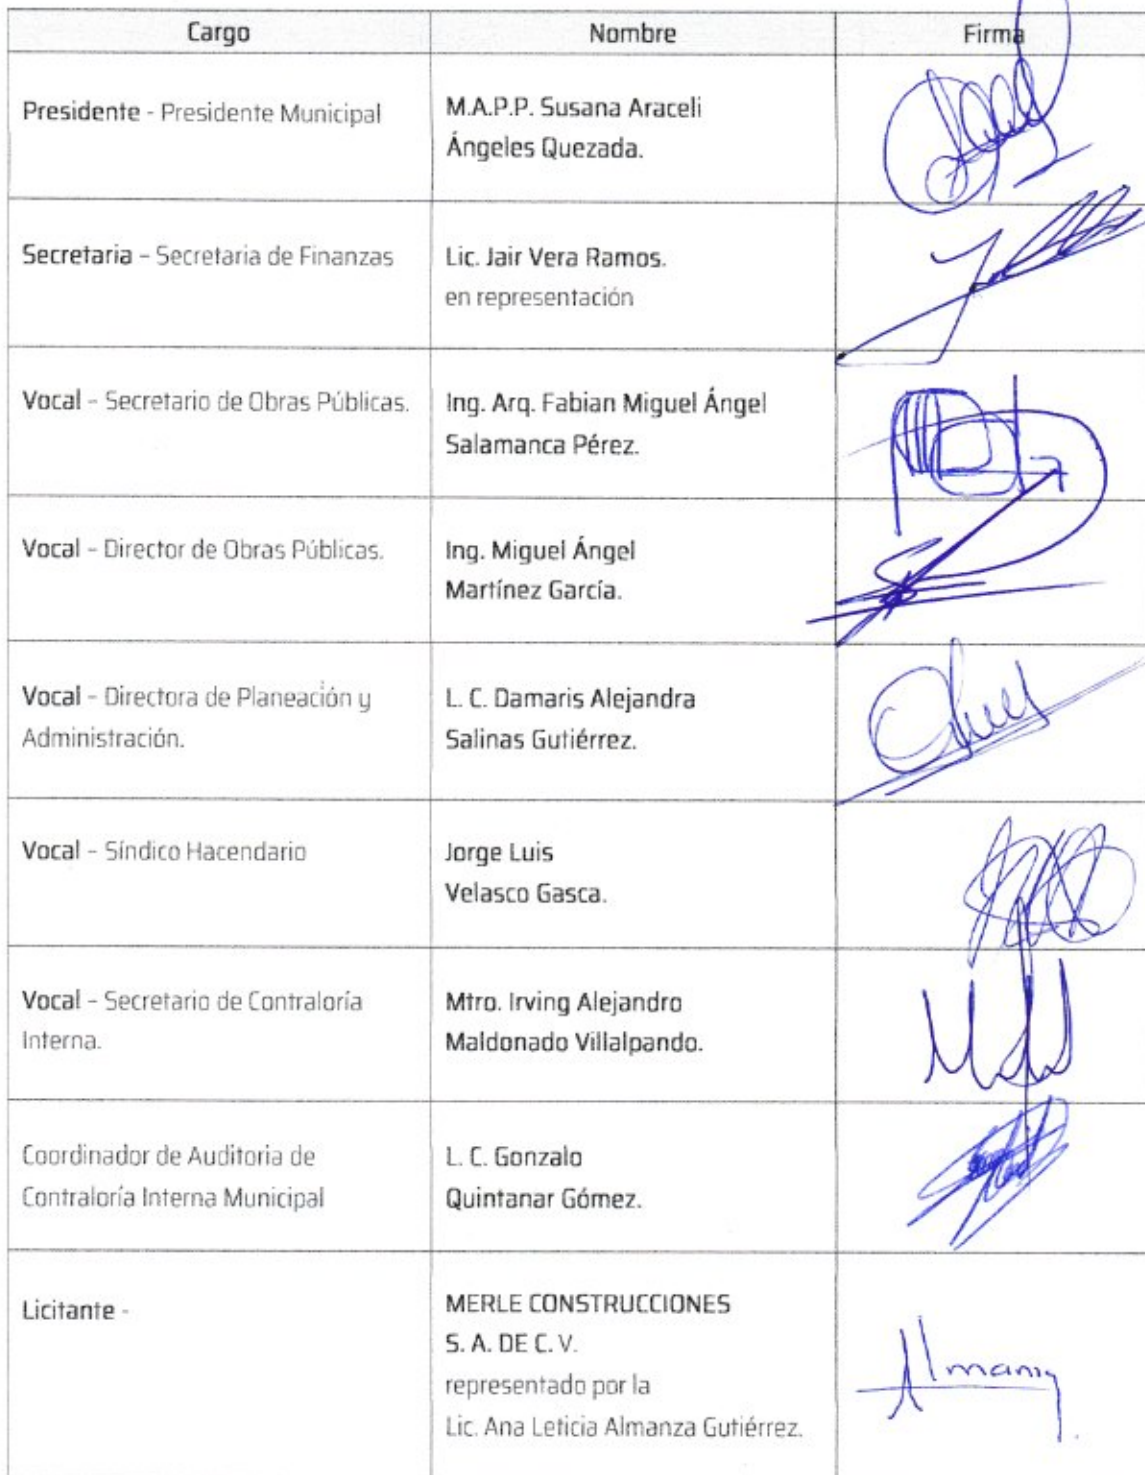 Cargo Nombre Firma
Presidente - Presidente Municipal
M.A.P.P. Susana Araceli
Ángeles Quezada.
Secretaria – Secretaria de Finanzas
Lic. Jair Vera Ramos.
en representación
Vocal – Secretario de Obras Públicas.
Ing. Arq. Fabian Miguel Ángel
Salamanca Pérez.
Vocal – Director de Obras Públicas.
Ing. Miguel Ángel
Martínez García.
Vocal – Directora de Planeación y
Administración.
L. C. Damaris Alejandra
Salinas Gutiérrez.
Vocal – Síndico Hacendario
Jorge Luis
Velasco Gasca.
Vocal – Secretario de Contraloría
Interna.
Mtro. Irving Alejandro
Maldonado Villalpando.
Coordinador de Auditoria de
Contraloría Interna Municipal
L. C. Gonzalo
Quintanar Gómez.
Licitante -
MERLE CONSTRUCCIONES
S. A. DE C. V.
representado por la
Lic. Ana Leticia Almanza Gutiérrez.